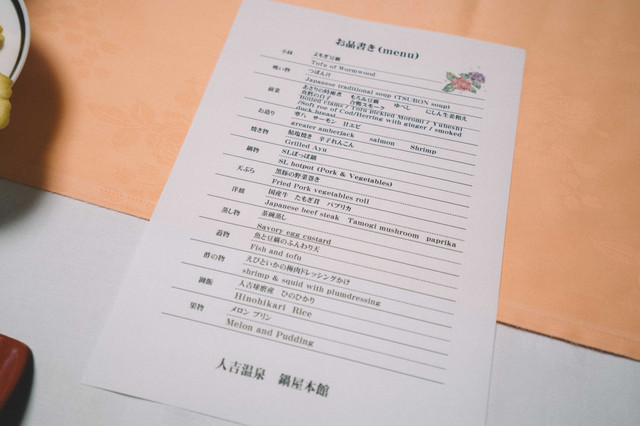 お品書き(menu)
小鉢 よもぎ豆腐
Tofu of Wormwood
吸い物 つぼん汁
Japanese traditional soup (TSUBON soup)
前菜 あさりの時雨煮 もろみ豆腐 ゆべし にしん生姜和え
合鴨スモーク
Boiled clams / Tofu pickled Moromi / Yubeshi
/Soft roe of Cod/Herring with ginger / smoked
duck breast
お造り サーモン 甘エビ
greater amberjack salmon Shrimp
焼き物 鮎塩焼き 辛子れんこん
Grilled Ayu
鍋物 SLぽっぽ鍋
SL hotpot (Pork & Vegetables)
天ぷら 黒豚の野菜巻き
Fried Pork vegetables roll
洋皿 国産牛 たもぎ茸 パプリカ
Japanese beef steak Tamogi mushroom paprika
蒸し物 茶碗蒸し
Savory egg custard
蓋物 魚と豆腐のふんわり天
Fish and tofu
酢の物 えびといかの梅肉ドレッシングかけ
shrimp & squid with plumdressing
御飯 人吉球磨産 ひのひかり
Hinohikari Rice
果物 メロン プリン
Melon and Pudding
人吉温泉 鍋屋本館